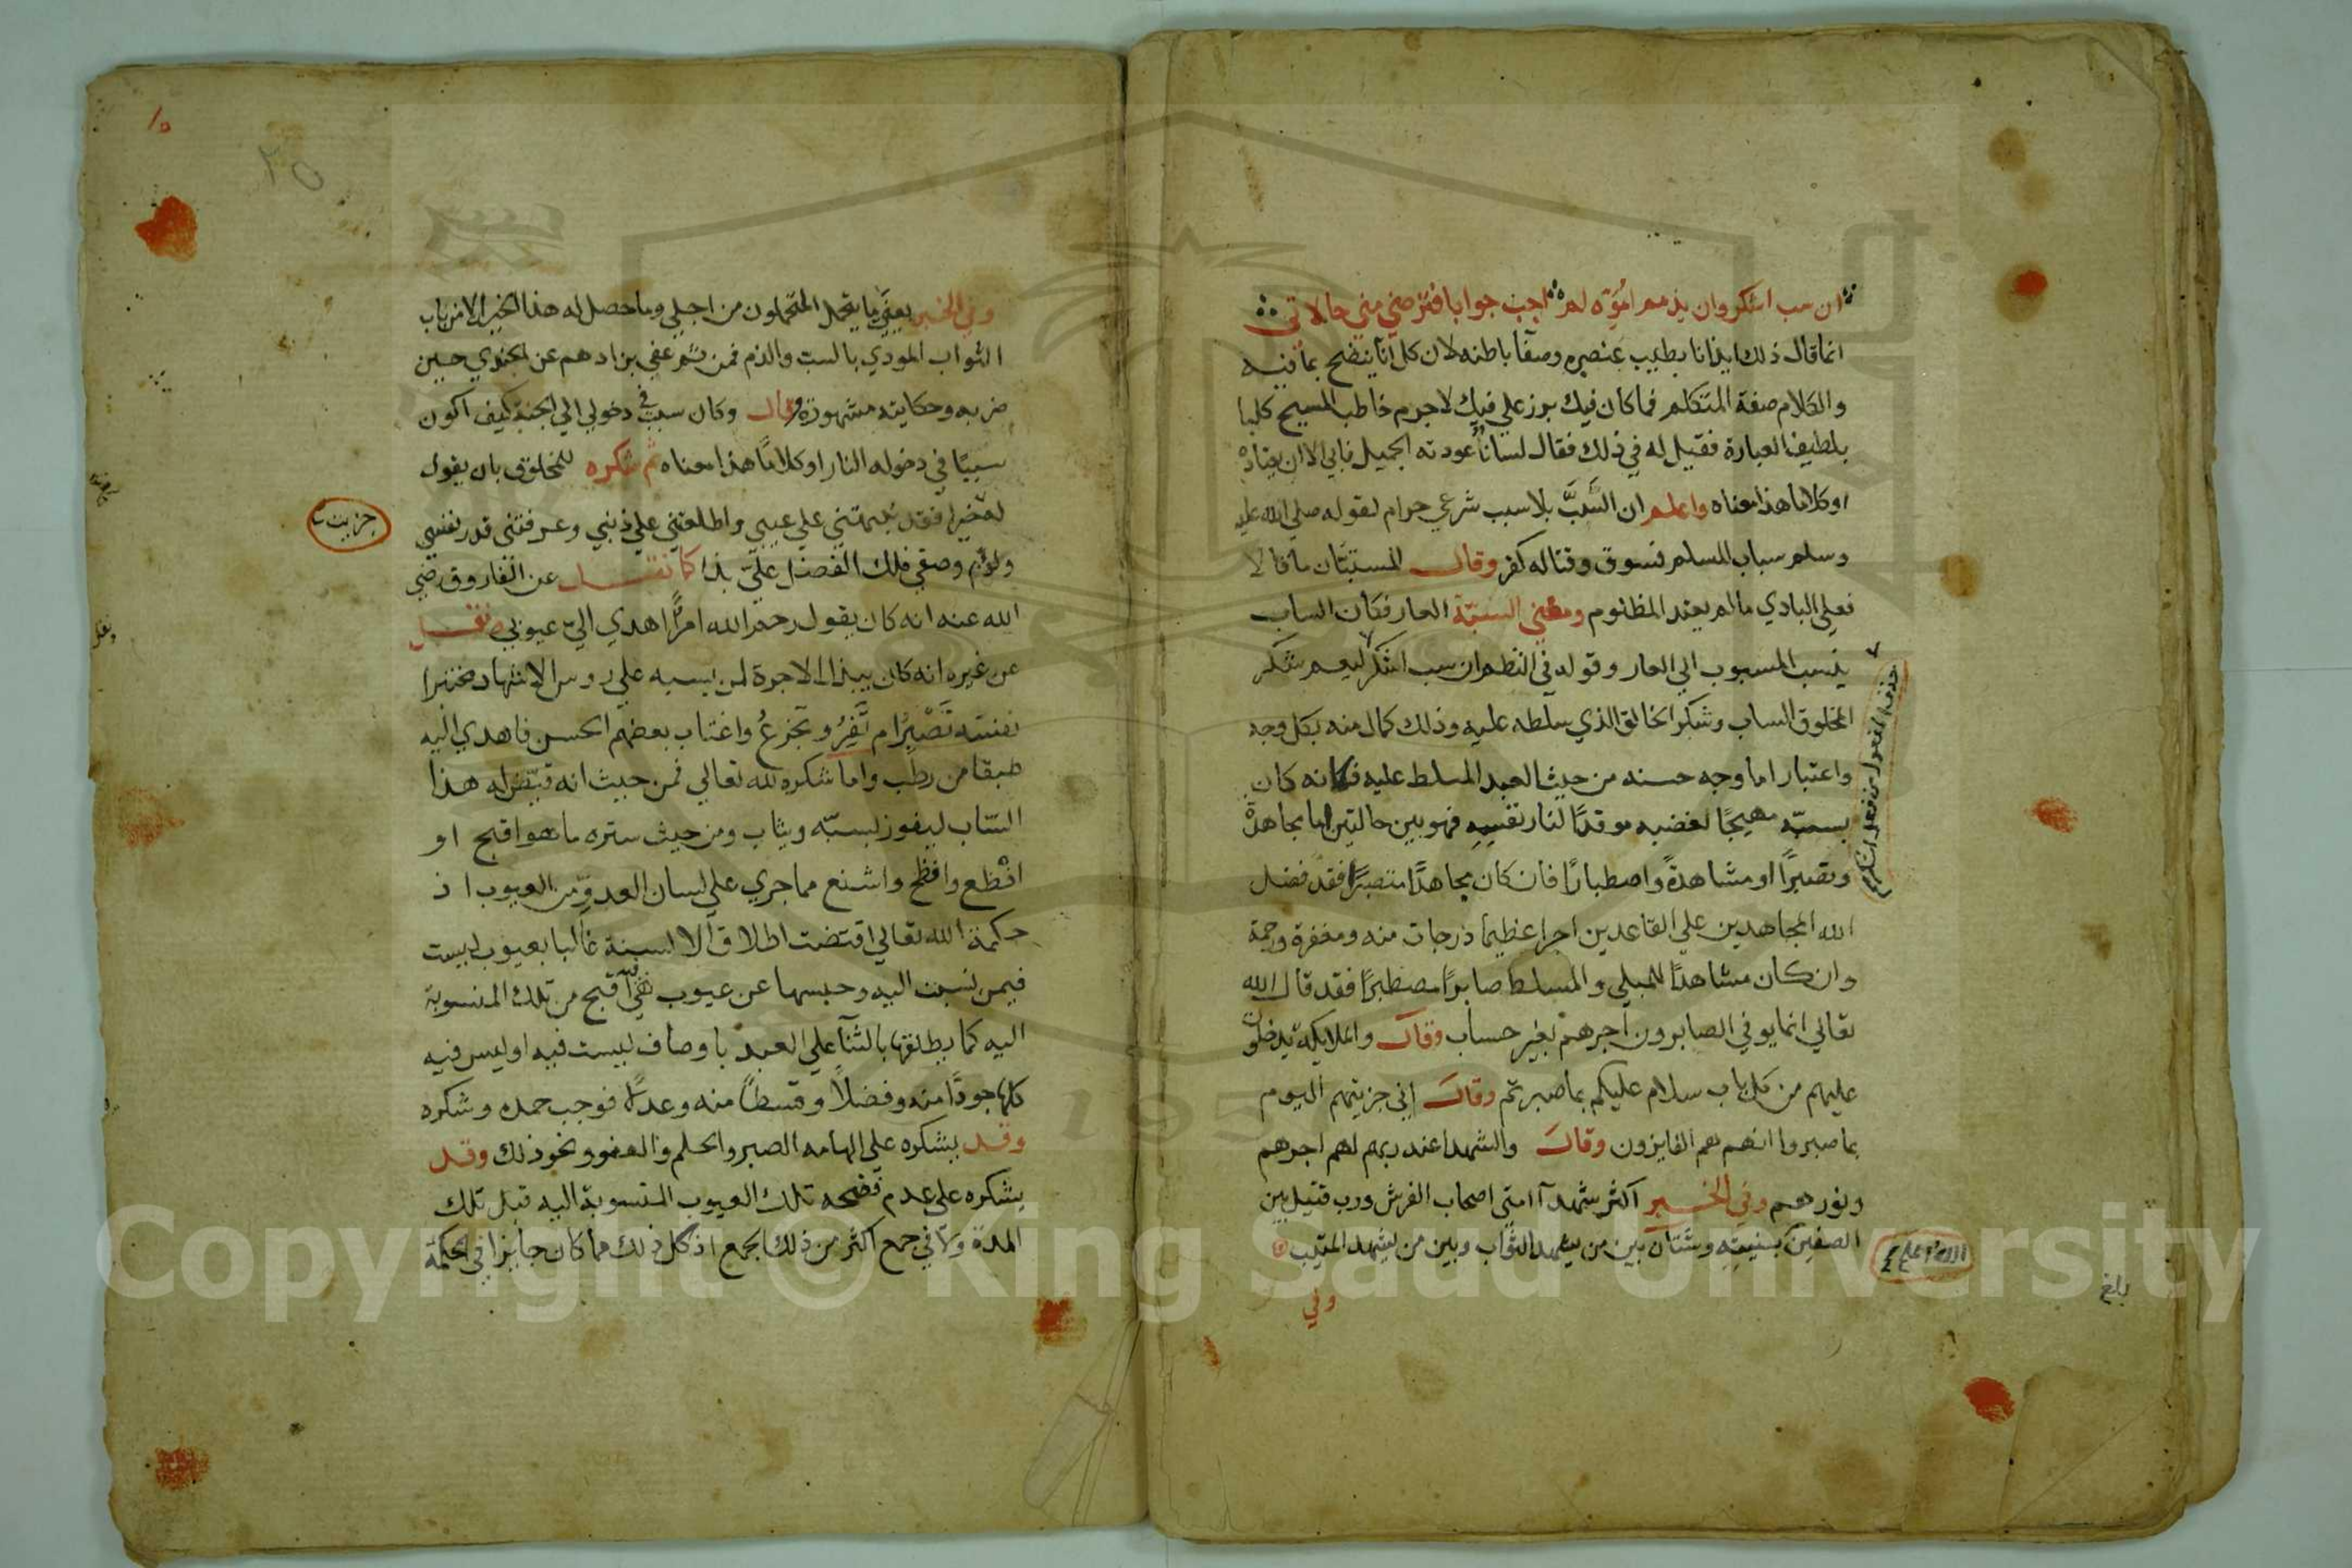 ان سب اشكر وان يذمم امرؤ له اجب جوابا فترضي مني حالاتي
انما قال ذلك ايذانا بطيب عنصره وصفا باطنه لان كل انآ ينضح بما فيه
والكلام صفة المتكلم فما كان فيك برز علي فيك لا جرم خاطب المسيح كلبا
بلطيف العبارة فقيل له في ذلك فقال لسانا عودته الجميل فابي الا ان يعتاده
او كلاما هذا معناه واعلم ان السَّبَّ بلا سبب شرعي حرام لقوله صلي الله عليه
وسلم سباب المسلم فسوق وقتاله كفر وقال المستبّان ما قالا
فعلي البادي ما لم يعتد المظلوم ومعني السبّة العار فكان الساب
ينسب المسبوب الي العار وقوله في النظم ان سب اشكر ليعم شكر
المخلوق الساب وشكر الخالق الذي سلطه عليه وذلك كمال منه بكل وجه
واعتبار اما وجه حسنه من حيث العبد المسلط عليه فكانه كان
بسبّه مهيجًا لغضبه موقدًا لنار نفسه فهو بين حالتين اما مجاهدة
وتصبرًا او مشاهدةً واصطبارًا فان كان مجاهدًا متصبرًا فقد فضل
الله المجاهدين علي القاعدين اجرا عظيما درجات منه ومغفرة ورحمة
وان كان مشاهدًا للمبلي والمسلط صابرًا مصطبرًا فقد قال الله
تعالي انما يوفي الصابرون اجرهم بغير حساب وقال والملايكة يدخلون
عليهم من كل باب سلام عليكم بما صبرتم وقال اني جزيتهم اليوم
بما صبروا انهم هم الفايزون وقال والشهدا عند ربهم لهم اجرهم
ونورهم وفي الخبر اكثر شهدآ امتي اصحاب الفرش ورب قتيل بين
الصفين الله اعلم بنيته وشتان بين من يشهد الثواب وبين من يشهد المثيب
وفي
بلغ
وفي الخبر بعيني ما يتحمل المتحملون من اجلي وما حصل له هذا الخير الا من باب
الثواب المودي بالسب والذم فمن ثم عفي بن ادهم عن الجندي حين
ضربه وحكايته مشهورة وقال وكان سبب في دخولي الي الجنة كيف اكون
سببًا في دخوله النار او كلامًا هذا معناه ثم شكره للمخلوق بان يقول
له خيرا فقد نبهتني علي عيبي واطلعتني علي ذنبي وعرفتني قدر نفسي
جزيت
وصفي فلك الفضل عليّ بذا كما نقل عن الفاروق رضي
الله عنه انه كان يقول رحم الله امرًا اهدي اليّ عيوبي ونقل
عن غيره انه كان يبذل الاجرة لمن يسبه علي روس الاشهاد مختبرا
نفسه تَصْبِرُ ام تَفِرُ وتجزعُ واغتاب بعضهم الحسن فاهدي اليه
طبقا من رطب واما شكره لله تعالي فمن حيث انه قيّض له هذا
السّاب ليفوز بسبّه ويثاب ومن حيث ستره ما هو اقبح او
افْظع وافظح واشنع مما جري علي لسان العدوّ من العيوب اذ
حكمة الله تعالي اقتضت اطلاق الالسنة غالبا بعيوب ليست
فيمن نسبت اليه وحبسها عن عيوب هي اقبح من تلك المنسوبة
اليه كما يطلقها بالثنآ علي العبد باوصاف ليست فيه او ليس فيه
كلها جودًا منه وفضلاً وقسطًا منه وعدلاً فوجب حمده وشكره
وقد يشكره علي الهامه الصبر والحلم والعفو ونحو ذلك وقد
يشكره علي عدم فضحه تلك العيوب المنسوبة اليه قبل تلك
المدة ولا في جمع اكثر من ذلك الجمع اذ كل ذلك مما كان جايزا في الحكمة